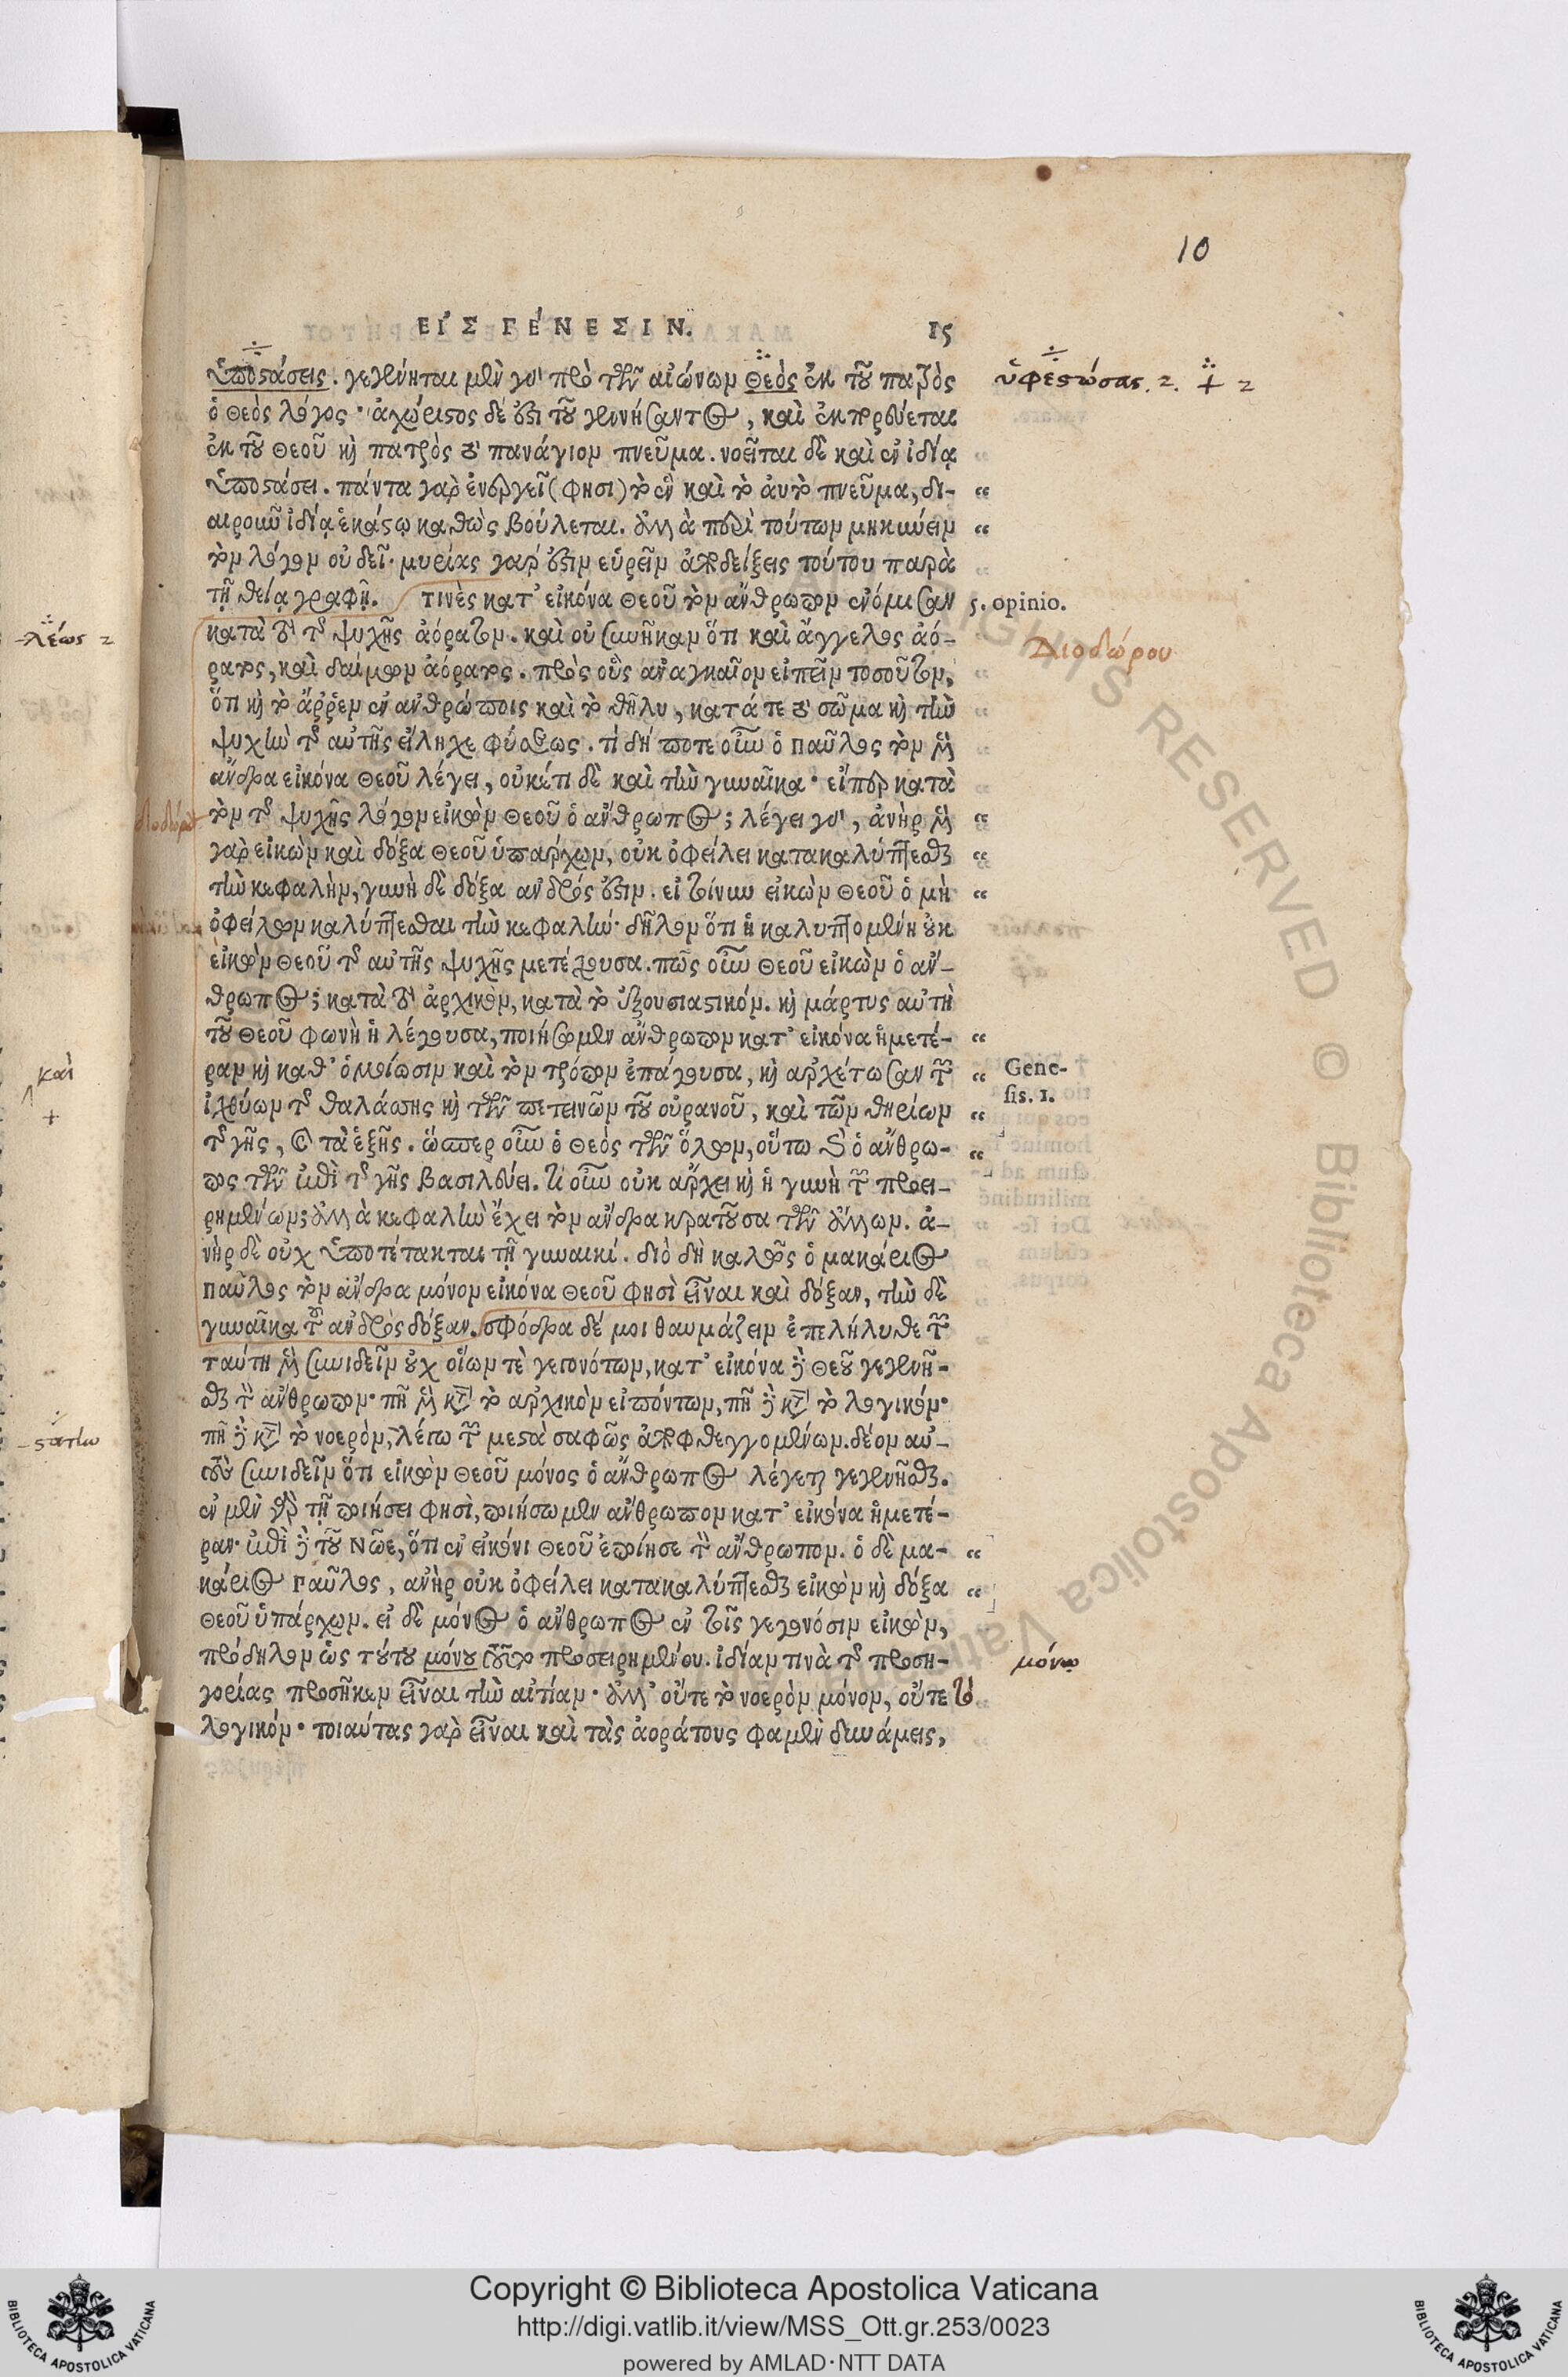 10
ΕΙ᾿Σ ΓΕ΄ΝΕΣΙΝ. 15
ὑποστάσεις. γεγέννηται μὲν γὰρ πρὸ τῶν αἰώνων Θεὸς ἐκ τοῦ πατρὸς
ὑφεστώσας. 2. + 2
ὁ Θεὸς λόγος· ἀχώριστος δέ ἐστι τοῦ γεννήσαντος, καὶ ἐκπορεύεται
ἐκ τοῦ Θεοῦ καὶ πατρὸς τὸ πανάγιον πνεῦμα. νοεῖται δὲ καὶ ἐν ἰδίᾳ
ὑποστάσει. πάντα γὰρ ἐνεργεῖ (φησι) τὸ ἓν καὶ τὸ ἀυτὸ πνεῦμα, δι- “
αιροιῶ ἰδίᾳ ἑκάστῳ καθὼς βούλεται. ἀλλὰ περὶ τούτων μηκύειν “
τὸν λόγον οὐ δεῖ· μυρίας γάρ ἐστιν εὑρεῖν ἀποδείξεις τούτου παρὰ
τῇ θείᾳ γραφῇ. τινὲς κατ᾿ εἰκόνα Θεοῦ τὸν ἄνθρωπον ἐνόμισαν
5. opinio.
κατὰ τὸ τῆς ψυχῆς ἀόρατον. καὶ οὐ συνῆκαν ὅτι καὶ ἄγγελος ἀό-
Διοδώρου
–λέως 2
ρατος, καὶ δαίμων ἀόρατος. πρὸς οὓς ἀναγκαῖον εἰπεῖν τοσοῦτον,
ὅτι καὶ τὸ ἄῤῥεν ἐν ἀνθρώποις καὶ τὸ θῆλυ, κατά τε τὸ σῶμα καὶ τὴν
ψυχὴν τῆς αὐτῆς εἴληχε φύσεως. τί δή ποτε οὖν ὁ Παῦλος τὸν μὲν
ἄνδρα εἰκόνα Θεοῦ λέγει, οὐκέτι δὲ καὶ τὴν γυναῖκα· εἴπερ κατὰ
τὸν τῆς ψυχῆς λόγον εἰκὼν Θεοῦ ὁ ἄνθρωπος; λέγει γὰρ, ἀνὴρ μὲν “
γὰρ εἰκὼν καὶ δόξα Θεοῦ ὑπάρχων, οὐκ ὀφείλει κατακαλύπτεσθαι “
τὴν κεφαλὴν, γυνὴ δὲ δόξα ἀνδρός ἐστιν. εἰ τοίνυν εἰκὼν Θεοῦ ὁ μὴ “
ὀφείλων καλύπτεσθαι τὴν κεφαλήν· δῆλον ὅτι ἡ καλυπτομένη οὐκ
εἰκὼν Θεοῦ τῆς αὐτῆς ψυχῆς μετέχουσα. πῶς οὖν Θεοῦ εἰκὼν ὁ ἄν-
θρωπος; κατὰ τὸ ἀρχικὸν, κατὰ τὸ ἐξουσιαστικόν. καὶ μάρτυς αὐτὴ
τοῦ Θεοῦ φωνὴ ἡ λέγουσα, ποιήσωμεν ἄνθρωπον κατ᾿ εἰκόνα ἡμετέ- “
ραν καὶ καθ᾿ ὁμοίωσιν καὶ τὸν τρόπον ἐπάγουσα, καὶ ἀρχέτωσαν τῶν “
Gene-
sis. 1.
καὶ
ἰχθύων τῆς θαλάσσης καὶ τῶν πετεινῶν τοῦ οὐρανοῦ, καὶ τῶν θηρίων “
τῆς γῆς, καὶ τὰ ἑξῆς. ὥσπερ οὖν ὁ Θεὸς τῶν ὅλων, οὕτω δὲ ὁ ἄνθρω- “
πος τῶν ἐπὶ τῆς γῆς βασιλεύει. τί οὖν οὐκ ἄρχει καὶ ἡ γυνὴ τῶν προει-
ρημένων; ἀλλὰ κεφαλὴν ἔχει τὸν ἄνδρα κρατοῦσα τῶν ἄλλων. ἀ-
νὴρ δὲ οὐχ ὑποτέτακται τῇ γυναικί. διὸ δὴ καλῶς ὁ μακάριος
Παῦλος τὸν ἄνδρα μόνον εἰκόνα Θεοῦ φησὶ εἶναι καὶ δόξαν, τὴν δὲ
γυναῖκα τοῦ ἀνδρὸς δόξαν. σφόδρα δέ μοι θαυμάζειν ἐπελήλυθε τῶν
ταύτῃ μὲν συνιδεῖν οὐχ οἵων τὲ γεγονότων, κατ᾿ εἰκόνα δὲ Θεοῦ γεγενῆ-
σθαι τὸν ἄνθρωπον· πῆ μὲν κατὰ τὸ ἀρχικὸν εἰπόντων, πῆ δὲ κατὰ τὸ λογικόν·
πῆ δὲ κατὰ τὸ νοερὸν, λέγω τῶν μεστὰ σαφῶς ἀποφθεγγομένων. δέον αὐ-
τοὺς συνιδεῖν ὅτι εἰκὼν Θεοῦ μόνος ὁ ἄνθρωπος λέγεται γεγενῆσθαι.
ἐν μὲν γὰρ τῇ ποιήσει φησὶ, ποιήσωμεν ἄνθρωπον κατ᾿ εἰκόνα ἡμετέ-
ραν· ἐπὶ δὲ τοῦ Νῶε, ὅτι ἐν εἰκόνι Θεοῦ ἐποίησε τὸν ἄνθρωπον. ὁ δὲ μα- “
κάριος Παῦλος, ἀνὴρ οὐκ ὀφείλει κατακαλύπτεσθαι εἰκὼν καὶ δόξα “
Θεοῦ ὑπάρχων. εἰ δὲ μόνος ὁ ἄνθρωπος ἐν τοῖς γεγονόσιν εἰκὼν,
πρόδηλον ὡς τούτου μόνου τοῦτο προσειρημένου. ἰδίαν τινὰ τῆς προση-
μόνῳ
γορίας προσῆκεν εἶναι τὴν αἰτίαν· ἀλλ᾿ οὔτε τὸ νοερὸν μόνον, οὔτε τὸ
λογικόν· τοιαύτας γὰρ εἶναι καὶ τὰς ἀοράτους φαμὲν δυνάμεις,
ALL RIGHTS RESERVED © Biblioteca Apostolica Vaticana
BIBLIOTECA APOSTOLICA VATICANA
Copyright © Biblioteca Apostolica Vaticana
http://digi.vatlib.it/view/MSS_Ott.gr.253/0023
powered by AMLAD·NTT DATA
BIBLIOTECA APOSTOLICA VATICANA